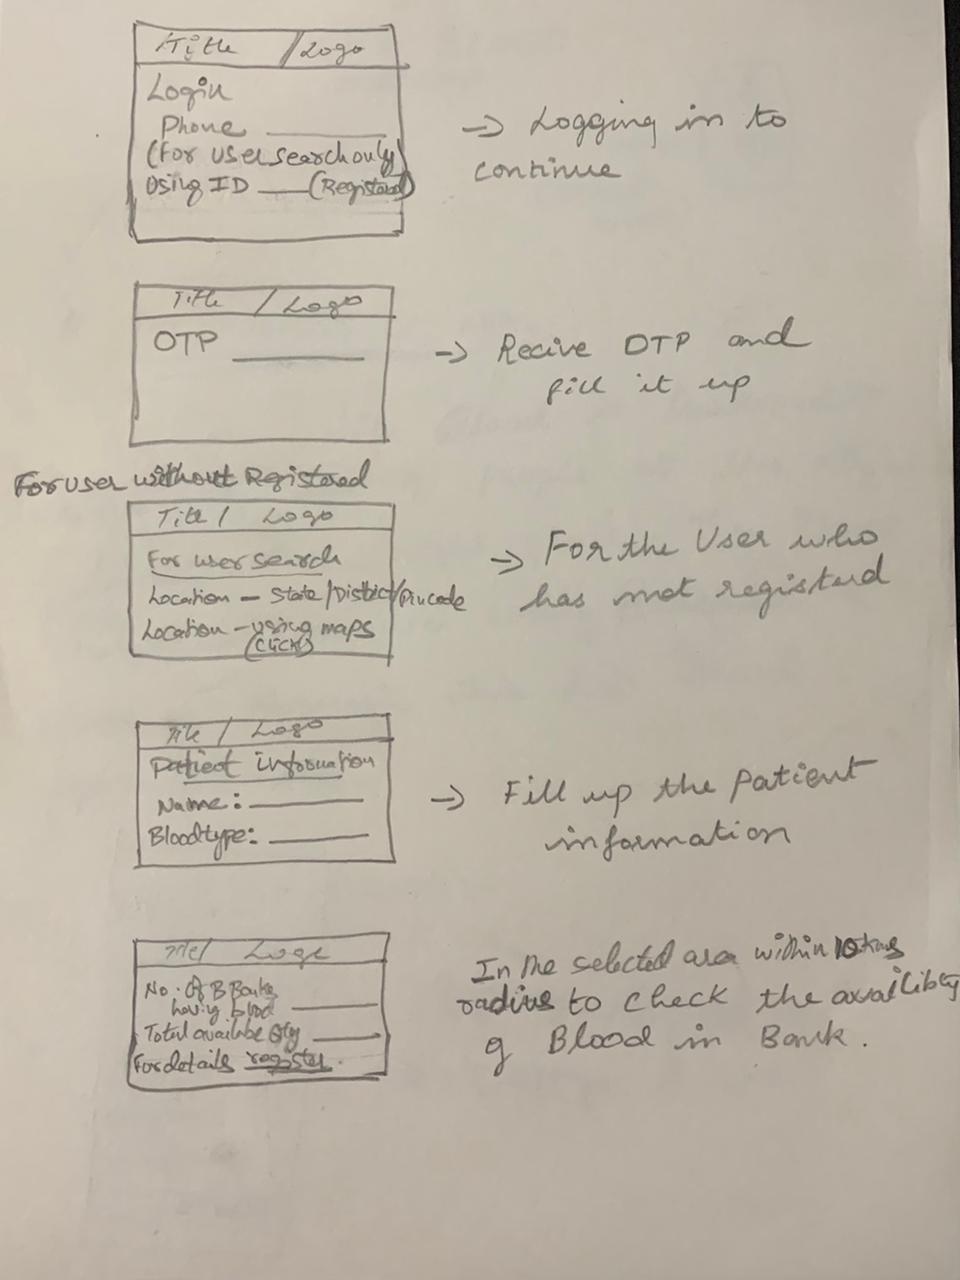 Title / Logo
Login
Phone
(For user search only)
Using ID (Registered)
→ Logging in to
continue
Title / Logo
OTP
→ Recive OTP and
fill it up
For user without Registered
Title / Logo
For user search
Location - State/District/Pincode
Location - using maps
(click)
→ For the User who
has not registerd
Title / Logo
Patient information
Name:
Bloodtype:
→ Fill up the patient
information
Title/ Logo
No. Of B Banks
having blood
Total availabe Qty
For details register.
In the selected area within 10 kms
radius to check the availiblity
of Blood in Bank.